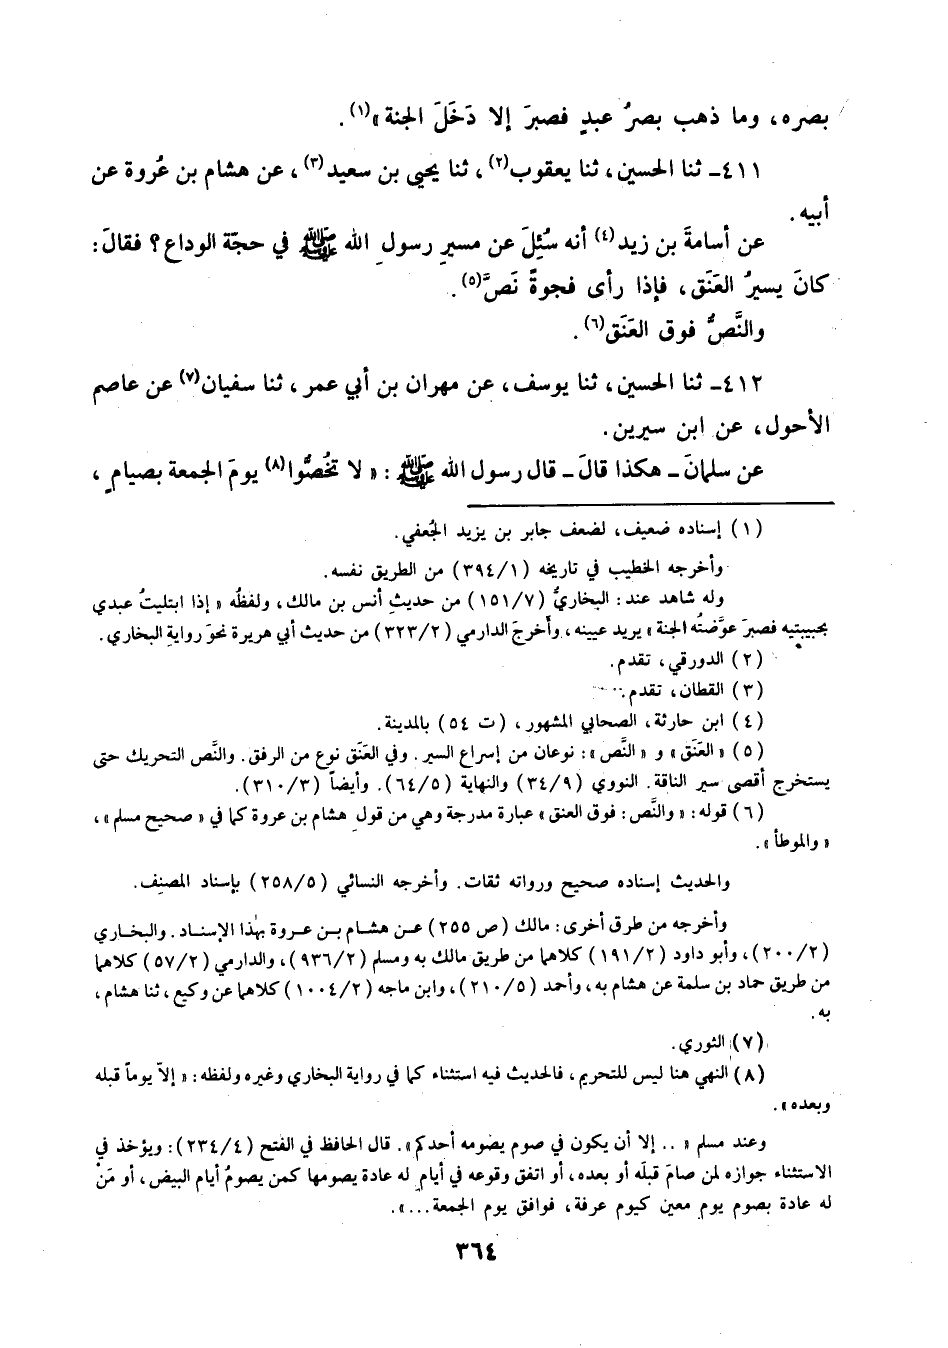 بصره، وما ذهب بصرُ عبدٍ فصبرَ إلا دَخَلَ الجنة»(١).
٤١١ـ ثنا الحسين، ثنا يعقوب(٢)، ثنا يحيى بن سعيد(٣)، عن هشام بن عُروة عن
أبيه.
عن أسامةَ بن زيد(٤) أنه سُئِلَ عن مسيرِ رسولِ الله ﷺ في حجّة الوداع؟ فقالَ:
كانَ يسيرُ العَنَق، فإذا رأى فجوةً نَصَّ(٥).
والنَّصُّ فوق العَنَق(٦).
٤١٢ـ ثنا الحسين، ثنا يوسف، عن مهران بن أبي عمر، ثنا سفيان(٧) عن عاصم
الأحول، عن ابن سيرين.
عن سلمانَ ـ هكذا قالَ ـ قال رسول الله ﷺ: « لا تخُصُّوا(٨) يومَ الجمعة بصيامٍ،
(١) إسناده ضعيف، لضعف جابر بن يزيد الجُعفي.
وأخرجه الخطيب في تاريخه (٣٩٤/١) من الطريق نفسه.
وله شاهد عند: البخاريُّ (١٥١/٧) من حديثِ أنس بن مالك، ولفظُه « إذا ابتليتُ عبدي
بحبيبتيه فصبرَ عوَّضتُه الجنة » يريد عيينه، وأخرجَ الدارمي (٣٢٣/٢) من حديث أبي هريرة نحوَ روايةِ البخاري.
(٢) الدورقي، تقدم.
(٣) القطان، تقدم.
(٤) ابن حارثة، الصحابي المشهور، (ت ٥٤) بالمدينة.
(٥) « العَنَق » و « النَّص »: نوعان من إسراع السير. وفي العَنَق نوع من الرفق. والنَّص التحريك حتى
يستخرج أقصى سير الناقة. النووي (٣٤/٩) والنهاية (٦٤/٥). وأيضاً (٣١٠/٣).
(٦) قوله: « والنَّص: فوق العنق » عبارة مدرجة وهي من قول هشام بن عروة كما في « صحيح مسلم »،
« والموطأ ».
والحديث إسناده صحيح ورواته ثقات. وأخرجه النسائي (٢٥٨/٥) بإسناد المصنِف.
وأخرجه من طرق أخرى: مالك (ص ٢٥٥) عن هشام بن عروة بهٰذا الإسناد. والبخاري
(٢٠٠/٢)، وأبو داود (١٩١/٢) كلاهما من طريق مالك به ومسلم (٩٣٦/٢)، والدارمي (٥٧/٢) كلاهما
من طريق حماد بن سلمة عن هشام به، وأحمد (٢١٠/٥)، وابن ماجه (١٠٠٤/٢) كلاهما عن وكيع، ثنا هشام،
به.
(٧) الثوري.
(٨) النهي هنا ليس للتحريم، فالحديث فيه استثناء كما في رواية البخاري وغيره ولفظه: « إلاّ يوماً قبله
وبعده ».
وعند مسلم « .. إلا أن يكون في صوم يصومه أحدكم ». قال الحافظ في الفتح (٢٣٤/٤): ويؤخذ في
الاستثناء جوازه لمن صامَ قبلَه أو بعده، أو اتفق وقوعه في أيامٍ له عادة يصومها كمن يصومُ أيام البيض، أو مَنْ
له عادة بصوم يومٍ معين كيوم عرفة، فوافق يوم الجمعة...».
٣٦٤